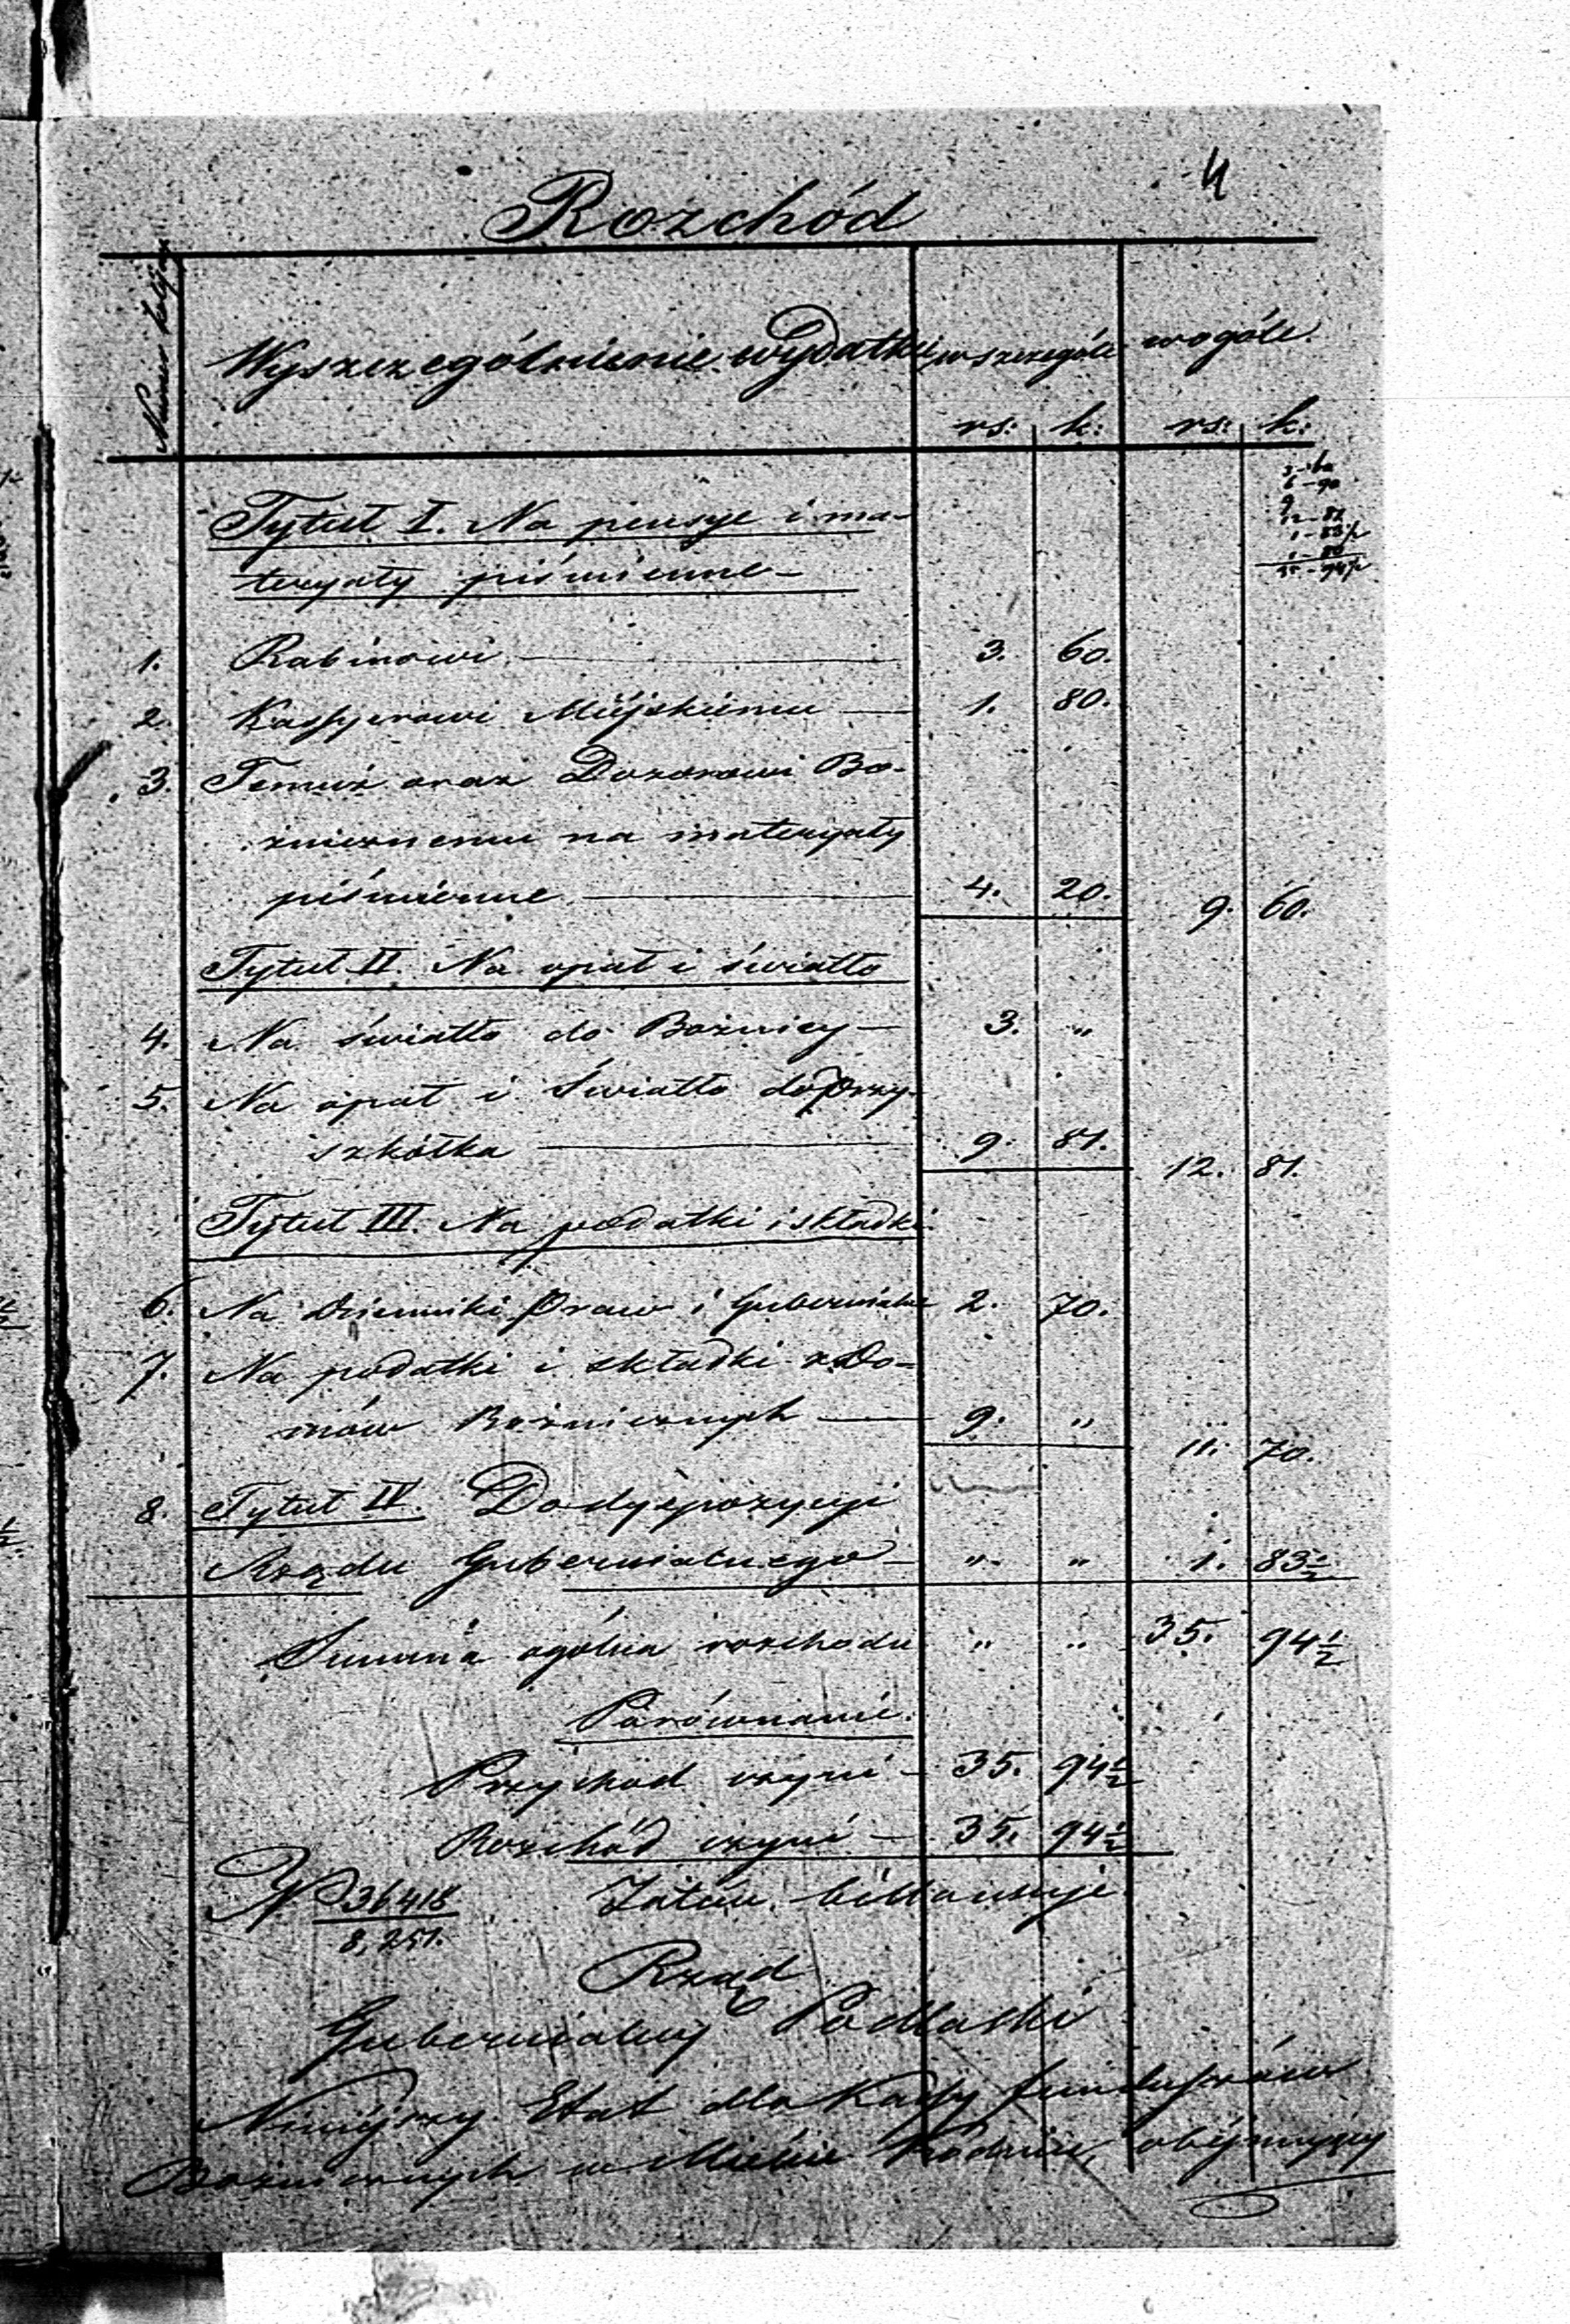 4
Rozchód
Numer kolejny
Wyszczególnienie wydatku w szczególe w ogóle.
rs: k: rs: k:
Tytuł I. Na pensye i ma-
teryały piśmienne
1. Rabinowi 3. 60.
2. Kassyerowi Miejskiemu 1. 80.
3. Temuż oraz Dozorowi Bo-
żnicznemu na materyały
piśmienne 4. 20. 9. 60.
Tytuł II. Na opał i światło
4. Na światło do Bożnicy 3. "
5. Na opał i światło do Przy-
szkółka 9. 81. 12. 81.
Tytuł III. Na podatki i składki
6. Na Dzienniki Praw i Gubernialne 2. 70.
7. Na podatki i składki z Do-
mów Bożnicznych 9. " 11. 70.
8. Tytuł IV. Do dyspozycyi
Rządu Gubernialnego " " 1. 83½
Summa ogólna rozchodu " " 35. 94½
Porównanie.
Przychod czyni 35. 94½
Rozchód czyni 35. 94½
No 36418 Zatem billansuje.
8,251.
Rząd
Gubernialny Podlaski
Niniejszy Etat dla Kassy funduszów
Bożnicznych w Mieście Kodniu, obejmujący